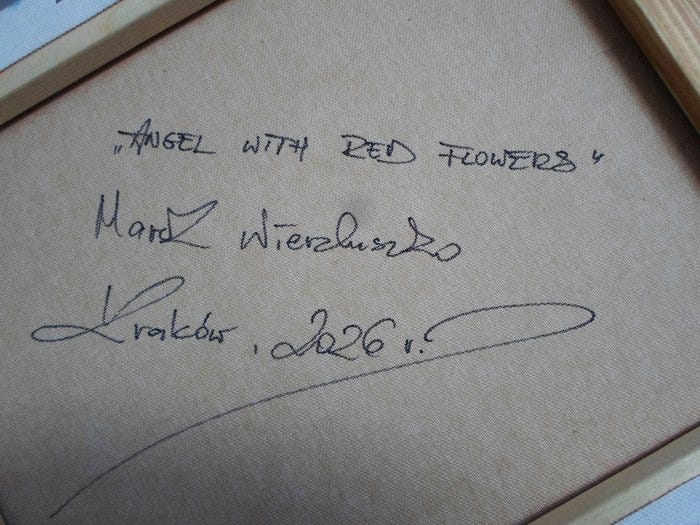 „ANGEL WITH RED FLOWERS"
Marek
Kraków, 2026 r.